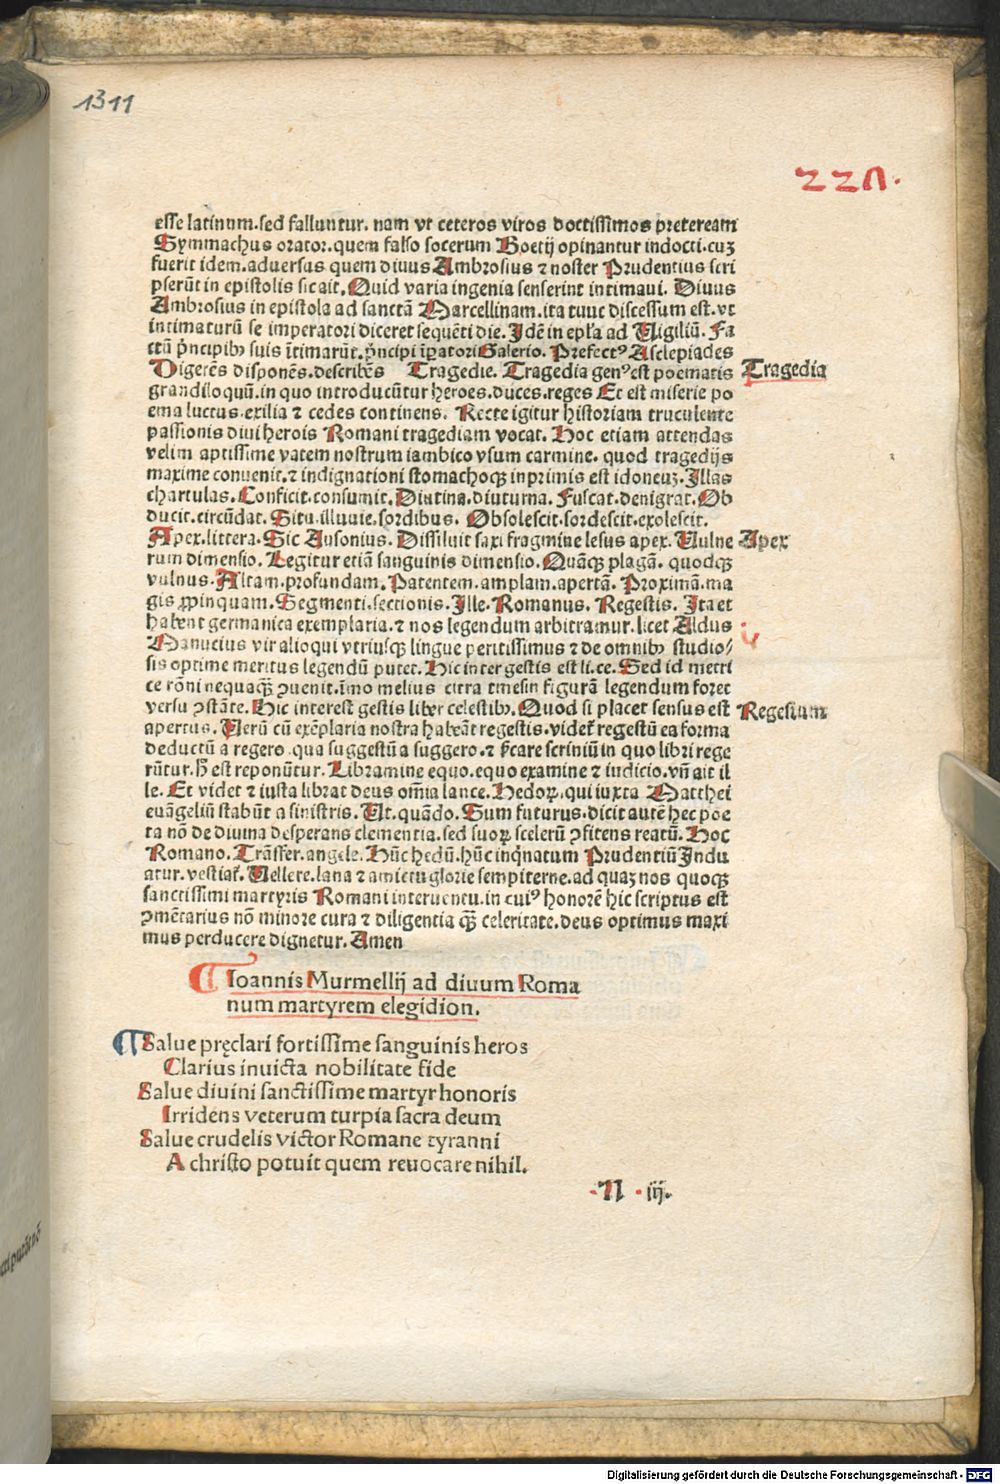 1311
220.
esse latinum.sed falluntur. nam vt ceteros viros doctissimos preteream
Symmachus orator.quem falso socerum Boetij opinantur indocti.cuʒ
fuerit idem.aduersus quem diuus Ambrosius ⁊ noster Prudentius scri
pserūt in epistolis sic ait. Quid varia ingenia senserint intimaui. Diuus
Ambrosius in epistola ad sanctā Marcellinam.ita tunc discessum est.vt
intimaturū se imperatori diceret sequēti die. Idē in epl̄a ad Uigiliū. Fa
ctū p̄ncipibꝰ suis ītimarūt.p̄ncipi īꝑatori Galerio. Prefectꝰ Asclepiades
Digerēs disponēs.describēs Tragedie. Tragedia genꝰ est poematis
Tragedia
grandiloquū.in quo introducūtur heroes.duces.reges Et est miserie po
ema luctus.exilia ⁊ cedes continens. Recte igitur historiam truculente
passionis diui herois Romani tragediam vocat. Hoc etiam attendas
velim aptissime vatem nostrum iambico vsum carmine. quod tragedijs
maxime conuenit.⁊ indignationi stomachoqꝫ inprimis est idoneuʒ. Illas
chartulas. Conficit.consumit. Diutina.diuturna. Fuscat.denigrat. Ob
ducit.circūdat. Situ.illuuie.sordibus. Obsolescit.sordescit.exolescit.
Apex.littera. Sic Ausonius. Dissiluit saxi fragmine lesus apex. Uulne
Apex
rum dimensio. Legitur etiā sanguinis dimensio. Quāqꝫ plagā. quodqꝫ
vulnus. Altam.profundam. Patentem.amplam.apertā. Proximā.ma
gis ꝓpinquam. Segmenti.sectionis. Ille. Romanus. Regestis. Ita et
habent germanica exemplaria.⁊ nos legendum arbitramur.licet Aldus
Manucius vir alioqui vtriusqꝫ lingue peritissimus ⁊ de omnibꝰ studio/
sis optime meritus legendū putet. Hic inter gestis est li.ce. Sed id metri
ce rōni nequaqꝫ ꝯuenit.īmo melius citra tmesin figurā legendum foret
versu ꝯstāte. Hic interest gestis liber celestibꝰ. Quod si placet sensus est
Regestum
apertus. Uerū cū exēplaria nostra habeāt regestis.videt᷑ regestū ea forma
deductū a regero.qua suggestū a suggero.⁊ s̄care scriniū in quo libri rege
rūtur.h̄ est reponūtur. Libramine equo.equo examine ⁊ iudicio.vn̄ ait il
le. Et videt ⁊ iusta librat deus om̄ia lance. Hedoꝝ.qui iuxta Matthei
euāgeliū stabūt a sinistris. Ut.quādo. Sum futurus.dicit autē hec poe
ta nō de diuina desperans clementia.sed suoꝝ scelerū ꝯfitens reatū. Hoc
Romano. Trāsfer.angele. Hūc hedū.hūc inq̄natum Prudentiū Indu
atur.vestiat᷑. Uellere.lana ⁊ amictu glorie sempiterne.ad quaʒ nos quoqꝫ
sanctissimi martyris Romani interuentu.in cuiꝰ honorē hic scriptus est
ꝯmētarius nō minore cura ⁊ diligentia qꝫ celeritate.deus optimus maxi
mus perducere dignetur. Amen
¶ Ioannis Murmellij ad diuum Roma
num martyrem elegidion.
¶ Salue pręclari fortissime sanguinis heros
Clarius inuicta nobilitate fide
Salue diuini sanctissime martyr honoris
Irridens veterum turpia sacra deum
Salue crudelis victor Romane tyranni
A christo potuit quem reuocare nihil.
N iij.
Digitalisierung gefördert durch die Deutsche Forschungsgemeinschaft - DFG